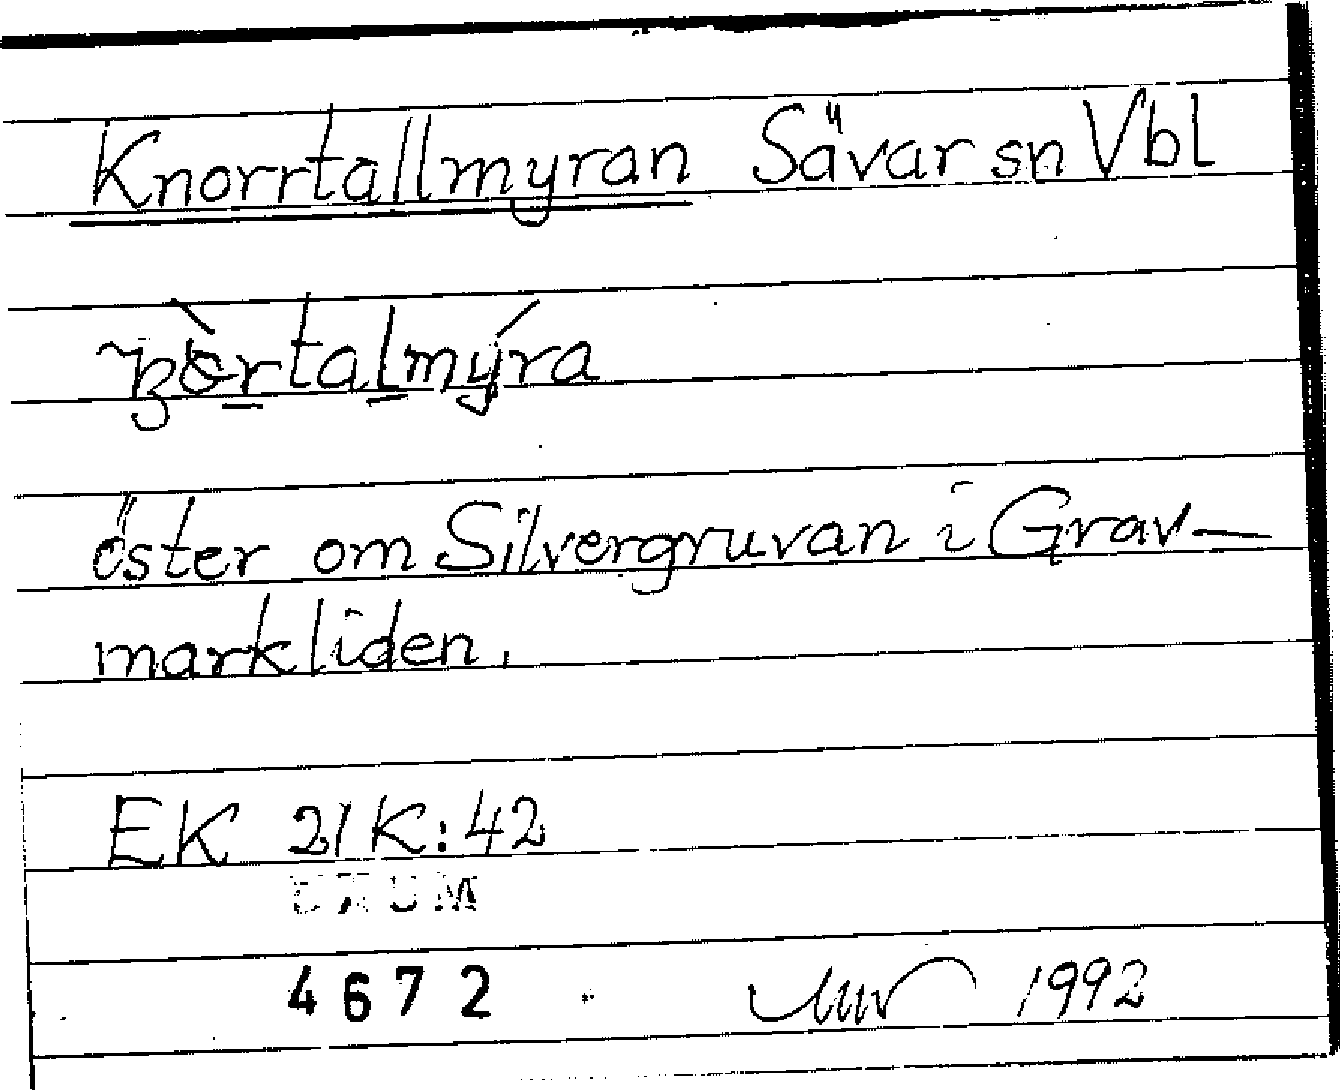 Knorrtallmyran Sävar sn Vbl
öster om Silvergruvan i Grav-
markliden.
EK 21K:42
DAUM
4672
1992